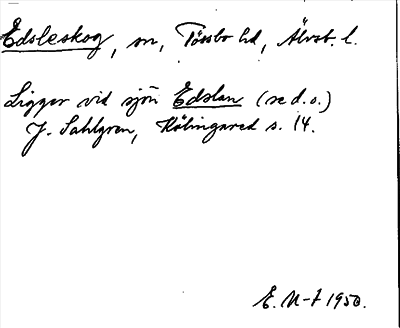 Edsleskog, sn, Tössbo hd, Älvsb. l.
Ligger vid sjön Edslan (se d. o.)
J. Sahlgren, Hälingared s. 14.
E. N-t 1950.